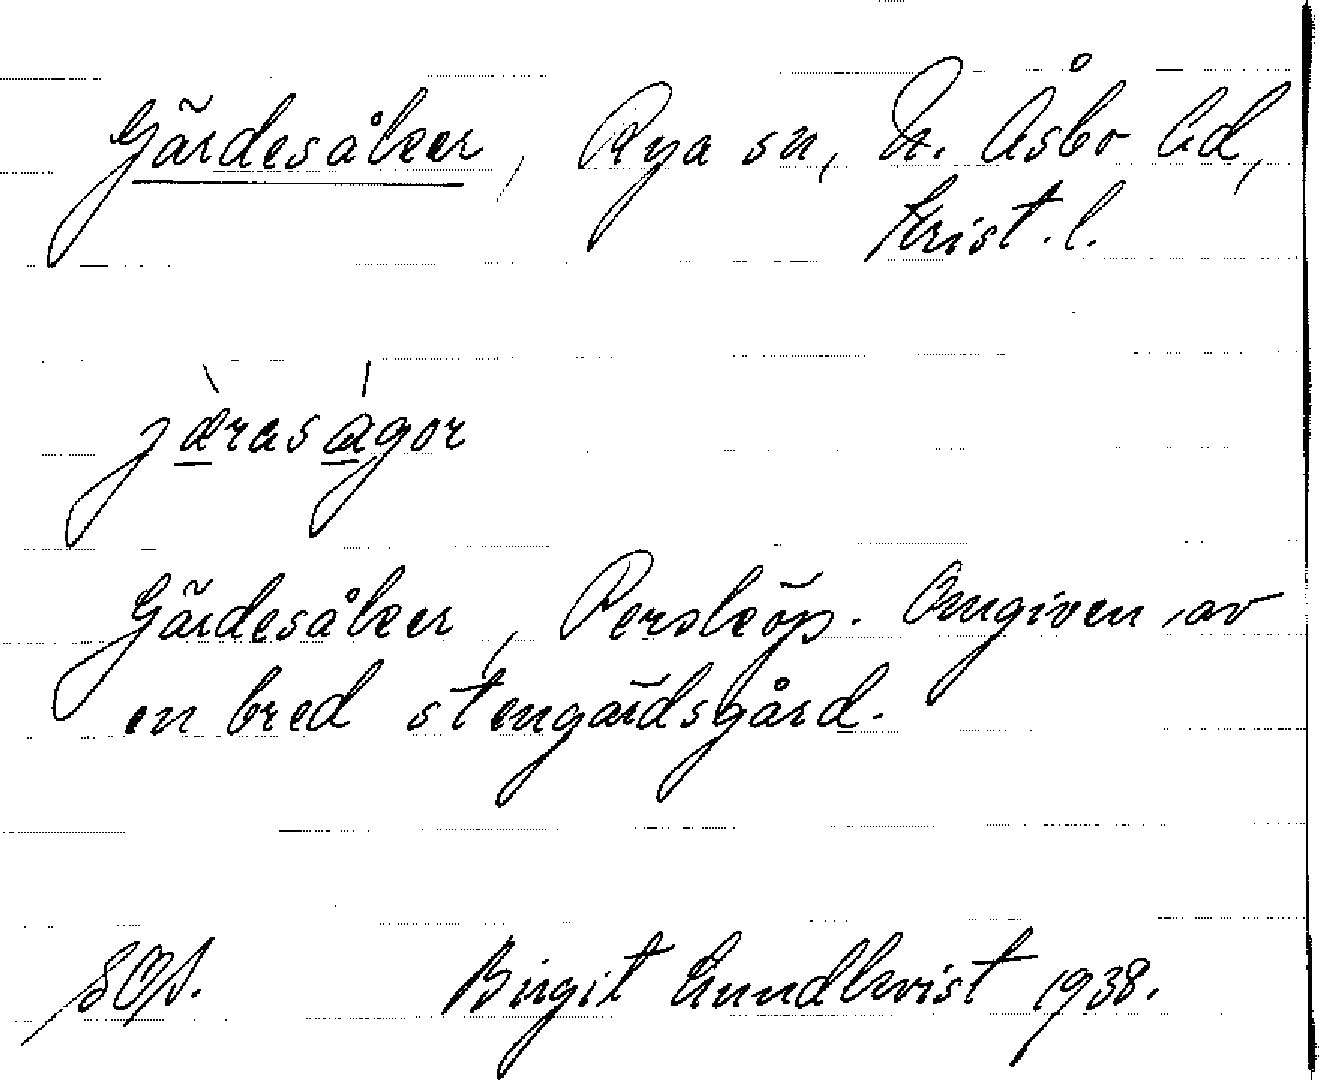 Gärdesåker, Rya sn, N. Åsbo hd,
Krist. l.
jærasågor
Gärdesåker, Persköp. Omgiven av
en bred stengärdsgård.
Birgit Lundkvist 1938.